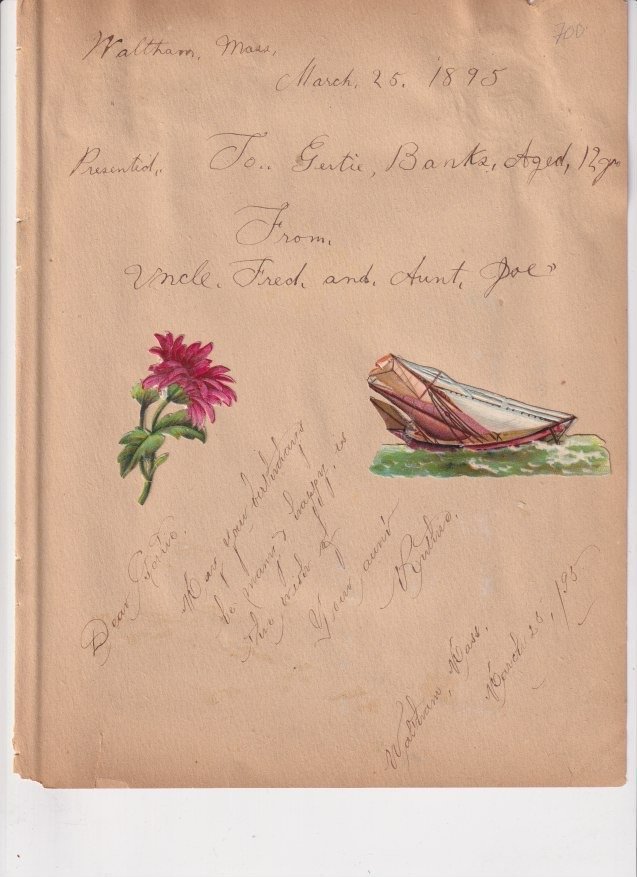 700.
Waltham, Mass,
March, 25. 1895
Presented,. To.. Gertie, Banks, Aged, 12 yrs
From,
Uncle. Fred. and. Aunt.
Dear Gertie.
May your birthdays
be many & happy is
the wish of
Your aunt
Waltham, Mass.
March 25, /95